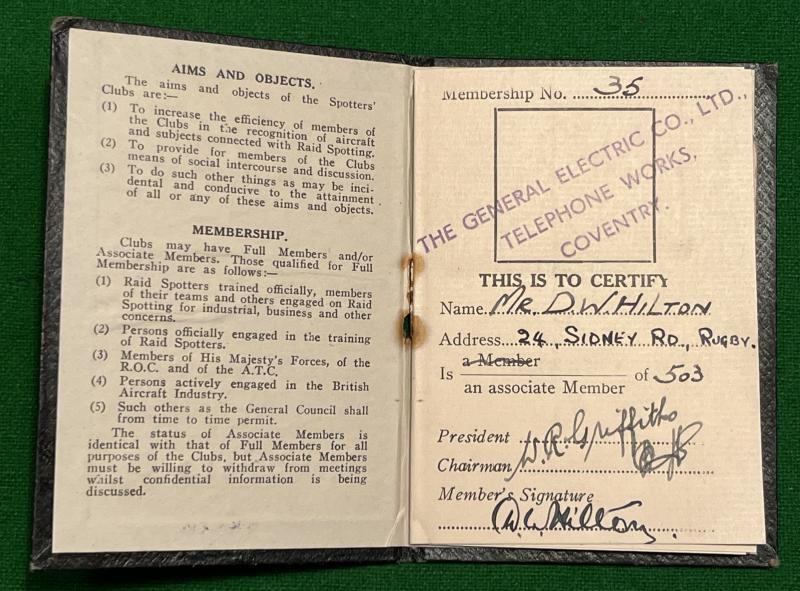 AIMS AND OBJECTS.
The aims and objects of the Spotters'
Clubs are:—
(1) To increase the efficiency of members of
the Clubs in the recognition of aircraft
and subjects connected with Raid Spotting.
(2) To provide for members of the Clubs
means of social intercourse and discussion.
(3) To do such other things as may be inci-
dental and conducive to the attainment
of all or any of these aims and objects.
MEMBERSHIP.
Clubs may have Full Members and/or
Associate Members. Those qualified for Full
Membership are as follows:—
(1) Raid Spotters trained officially, members
of their teams and others engaged on Raid
Spotting for industrial, business and other
concerns.
(2) Persons officially engaged in the training
of Raid Spotters.
(3) Members of His Majesty's Forces, of the
R.O.C. and of the A.T.C.
(4) Persons actively engaged in the British
Aircraft Industry.
(5) Such others as the General Council shall
from time to time permit.
The status of Associate Members is
identical with that of Full Members for all
purposes of the Clubs, but Associate Members
must be willing to withdraw from meetings
whilst confidential information is being
discussed.
Membership No. 35
THE GENERAL ELECTRIC CO., LTD.,
TELEPHONE WORKS,
COVENTRY.
THIS IS TO CERTIFY
Name MR. D W HILTON
Address 24, SIDNEY RD., RUGBY.
a Member
Is of 503
an associate Member
President W. R. Griffiths
Chairman
Member's Signature
D. W. Hilton.